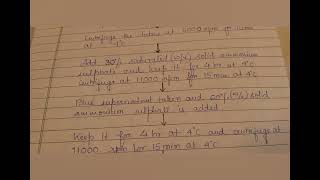 Centrifuge the latex at 5000 rpm
at 4°C
Add 30% saturated (w/v) solid ammonium
sulphate and keep it for 4 hr at 4°C
centrifuge at 11000 rpm for 15 min at 4°C
supernatant taken and 60% (w/v) solid
ammonium sulphate is added
Keep it for 4 hr at 4°C and centrifuge at
11000 rpm for 15 min at 4°C